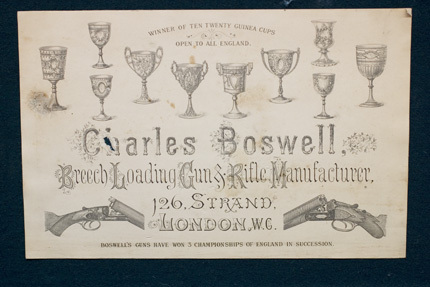 WINNER OF TEN TWENTY GUINEA CUPS
OPEN TO ALL ENGLAND.
Charles Boswell,
Breech Loading Gun & Rifle Manufacturer,
126, STRAND,
LONDON, W.C.
BOSWELL'S GUNS HAVE WON 3 CHAMPIONSHIPS OF ENGLAND IN SUCCESSION.